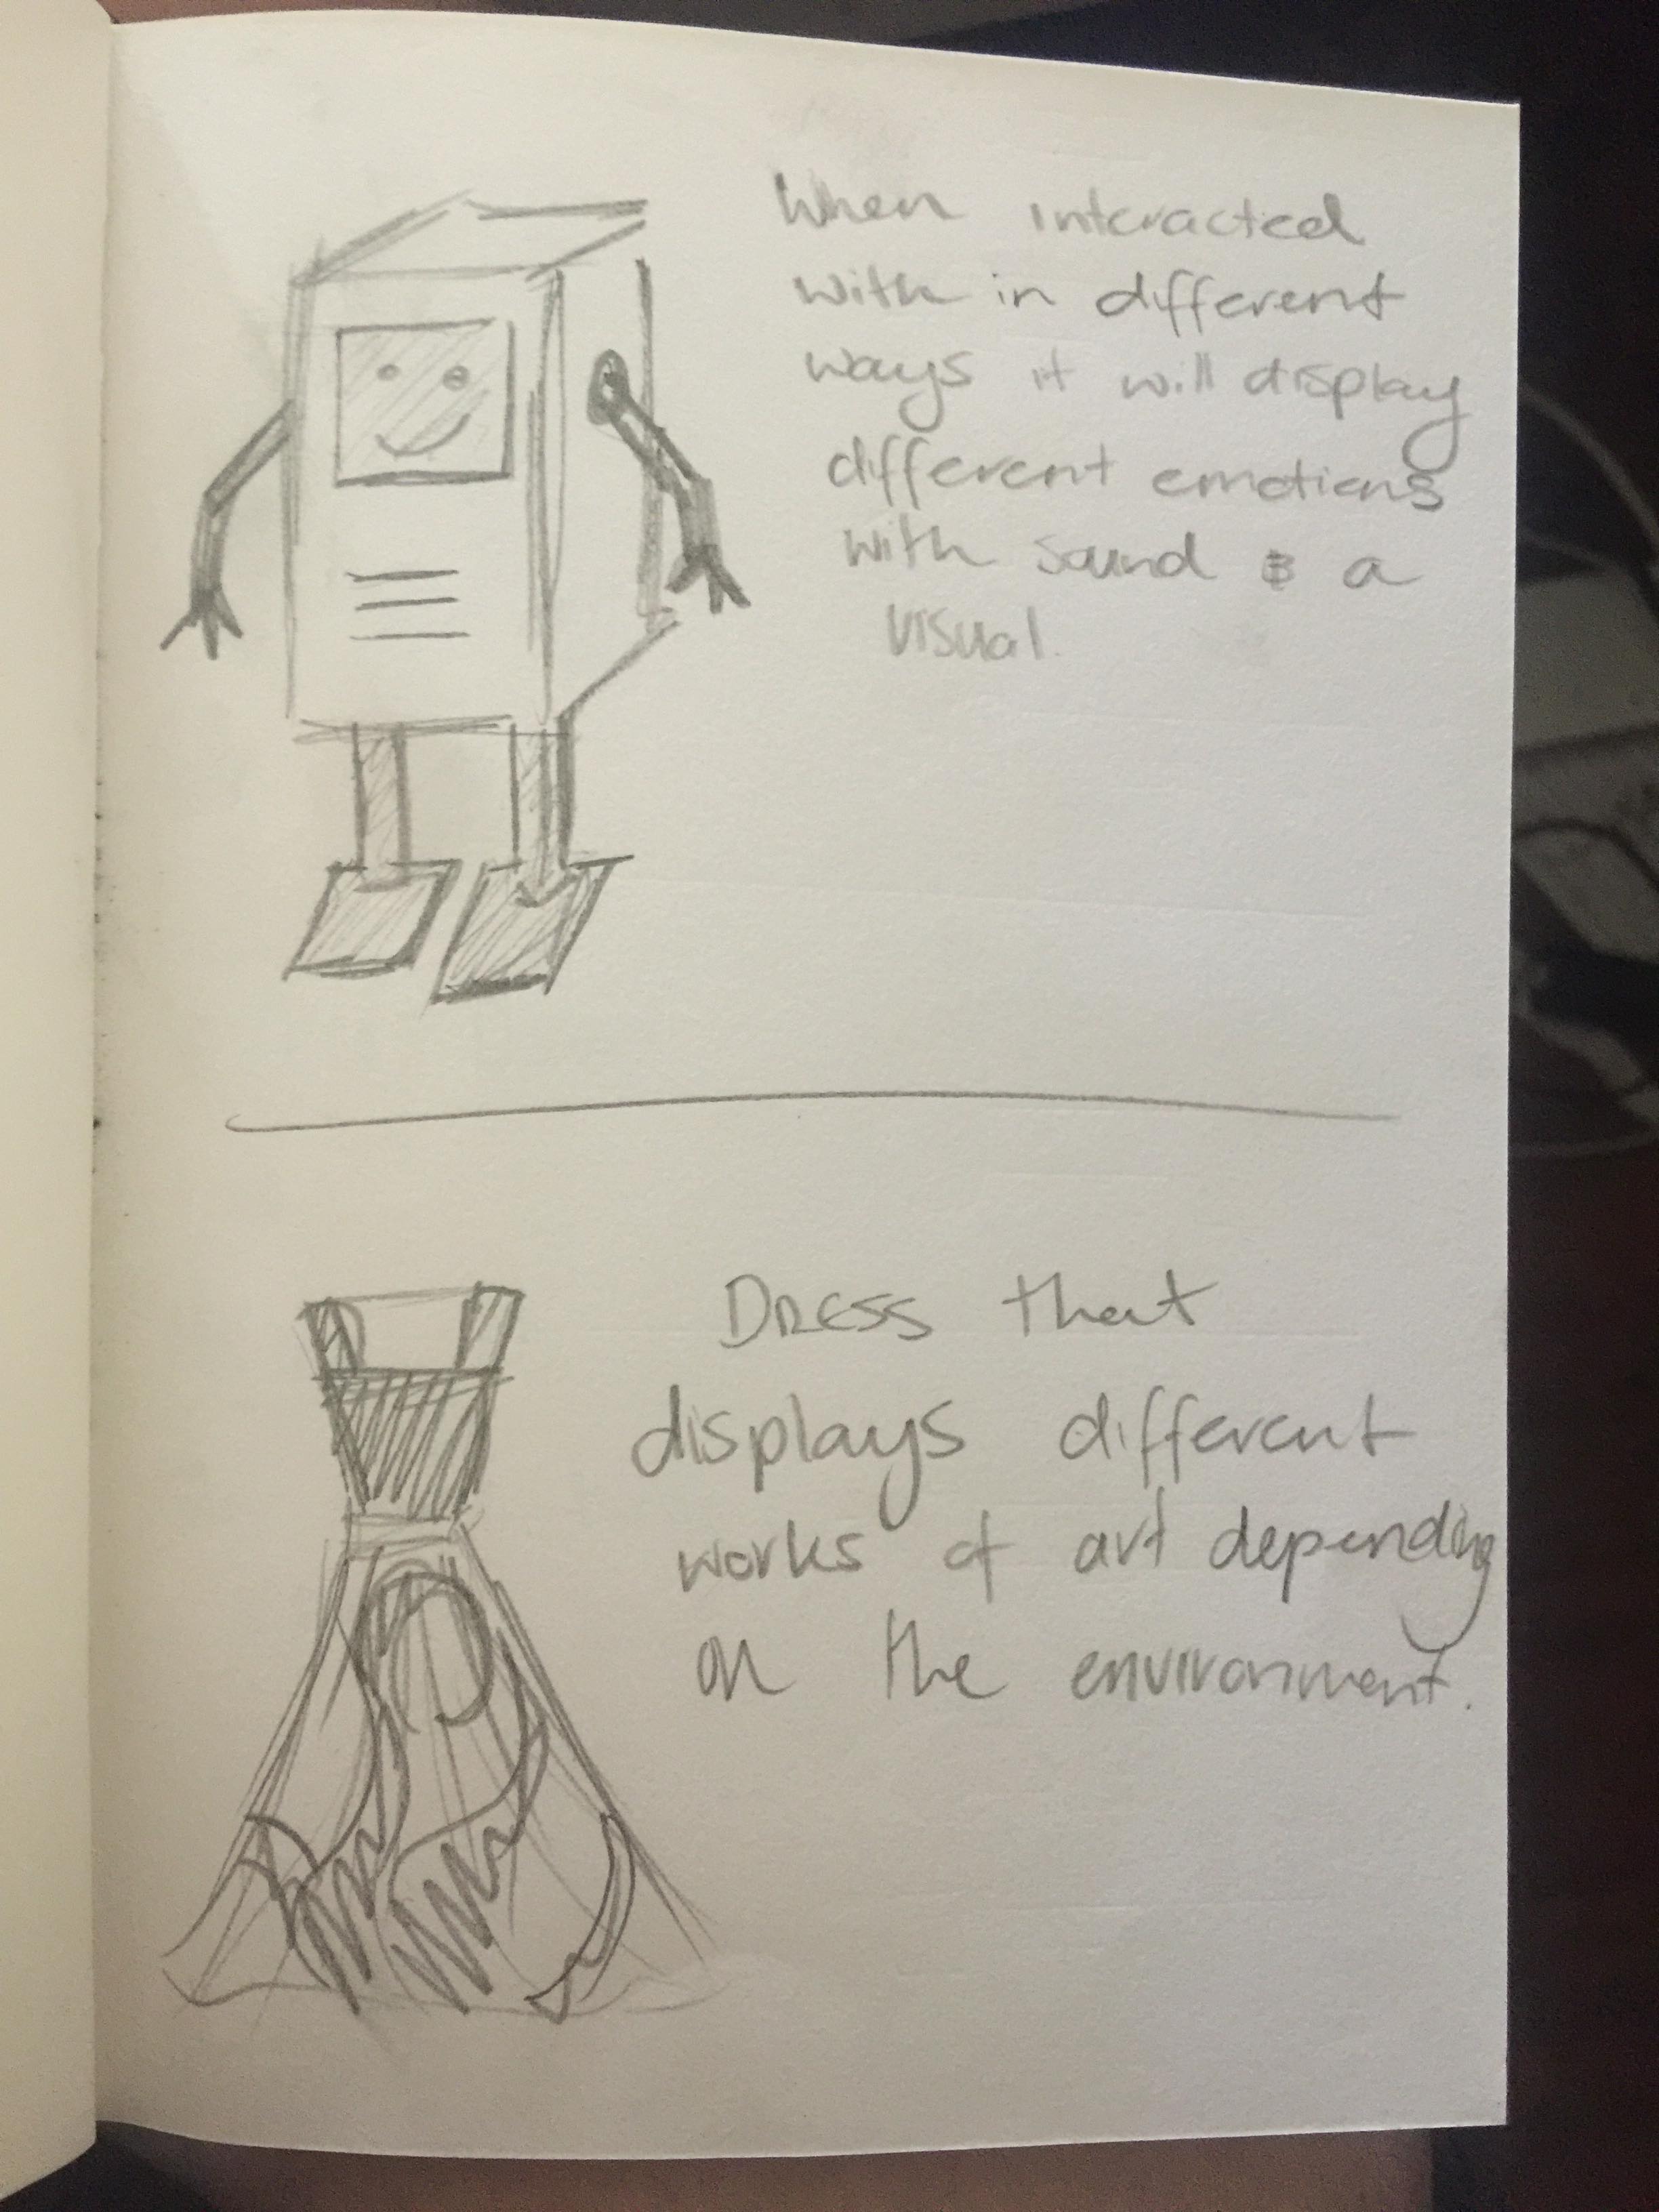 When interacted
with in different
ways it will display
different emotions
with sound & a
visual.
DRESS that
displays different
works of art depending
on the environment.